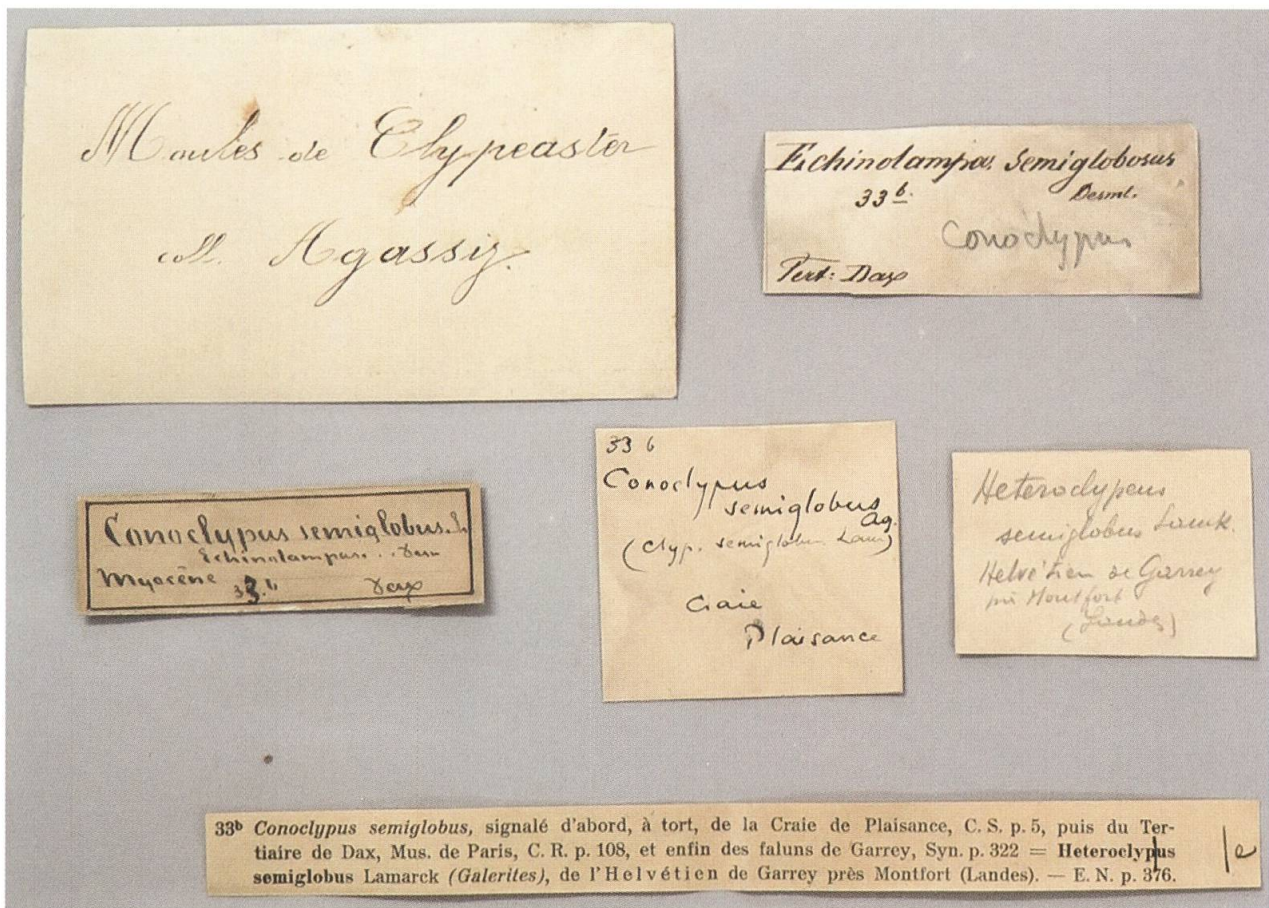 Moules de Clypeaster
coll. Agassiz.
Echinolampas semiglobosus
33b. Desml.
Conoclypus
Tert: Dax
Conoclypus semiglobus.
Echinolampas.
Myocène 33.b Dax
33 b
Conoclypus
semiglobus Ag.
(Clyp. semiglobus Lam)
Craie
Plaisance
Heteroclypeus
semiglobus Lamk.
Helvétien de Garrey
près Montfort
(Landes)
33b Conoclypus semiglobus, signalé d'abord, à tort, de la Craie de Plaisance, C. S. p. 5, puis du Ter-
tiaire de Dax, Mus. de Paris, C. R. p. 108, et enfin des faluns de Garrey, Syn. p. 322 = Heteroclypus
semiglobus Lamarck (Galerites), de l'Helvétien de Garrey près Montfort (Landes). — E. N. p. 376.
e